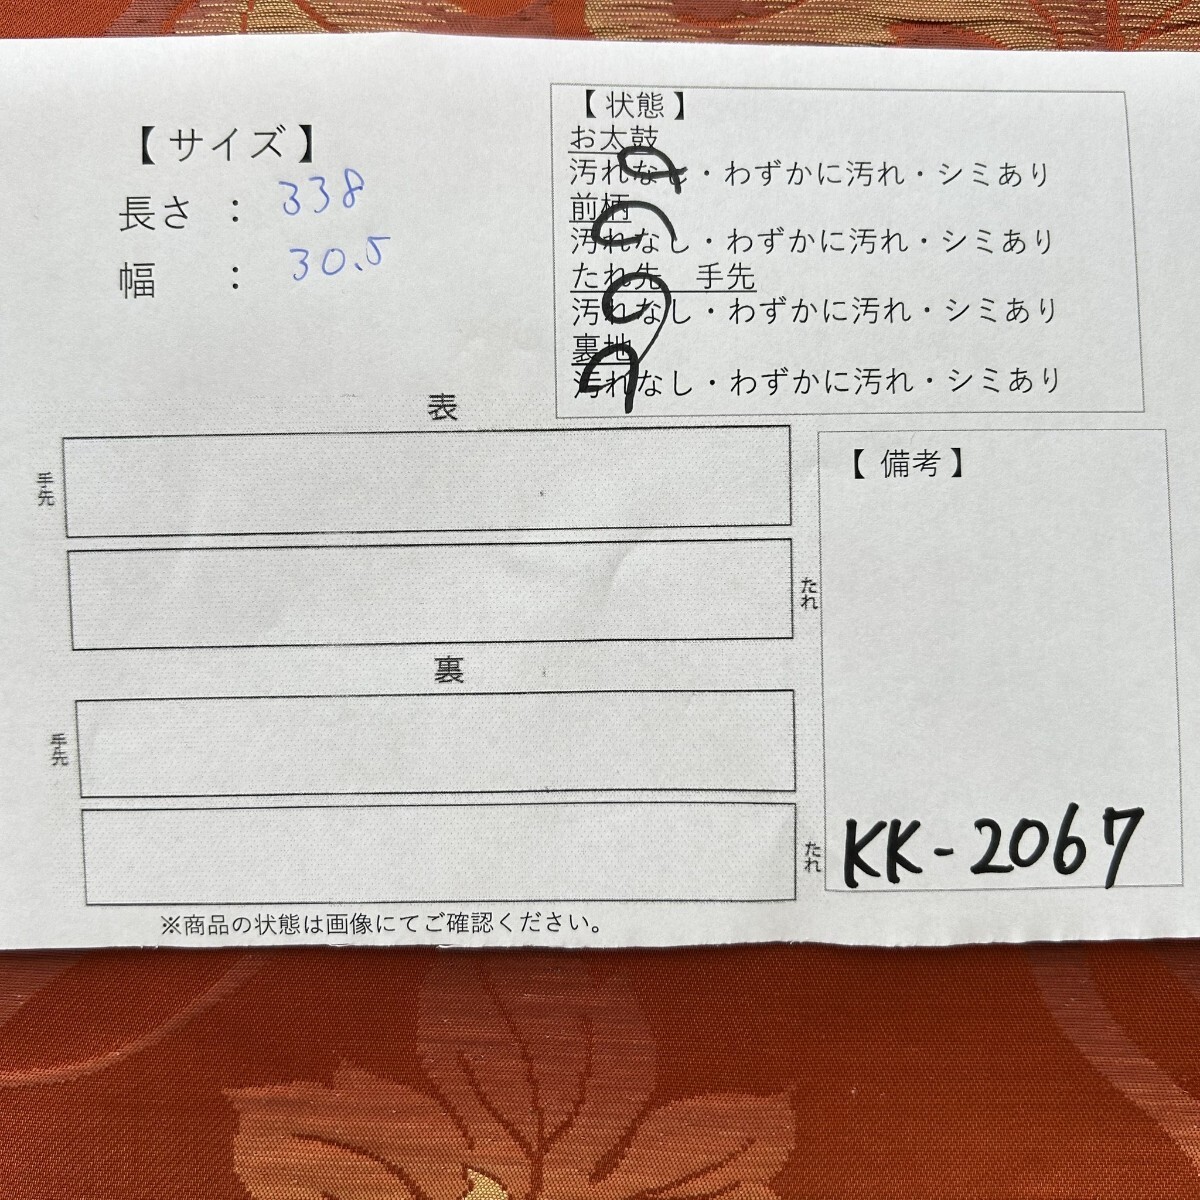 【 サイズ 】
長さ : 338
幅 : 30.5
【 状態 】
お太鼓
汚れなし・わずかに汚れ・シミあり
前柄
汚れなし・わずかに汚れ・シミあり
たれ先 手先
汚れなし・わずかに汚れ・シミあり
裏地
汚れなし・わずかに汚れ・シミあり
表
手先
たれ
裏
手先
たれ
【 備考 】
KK-2067
※商品の状態は画像にてご確認ください。